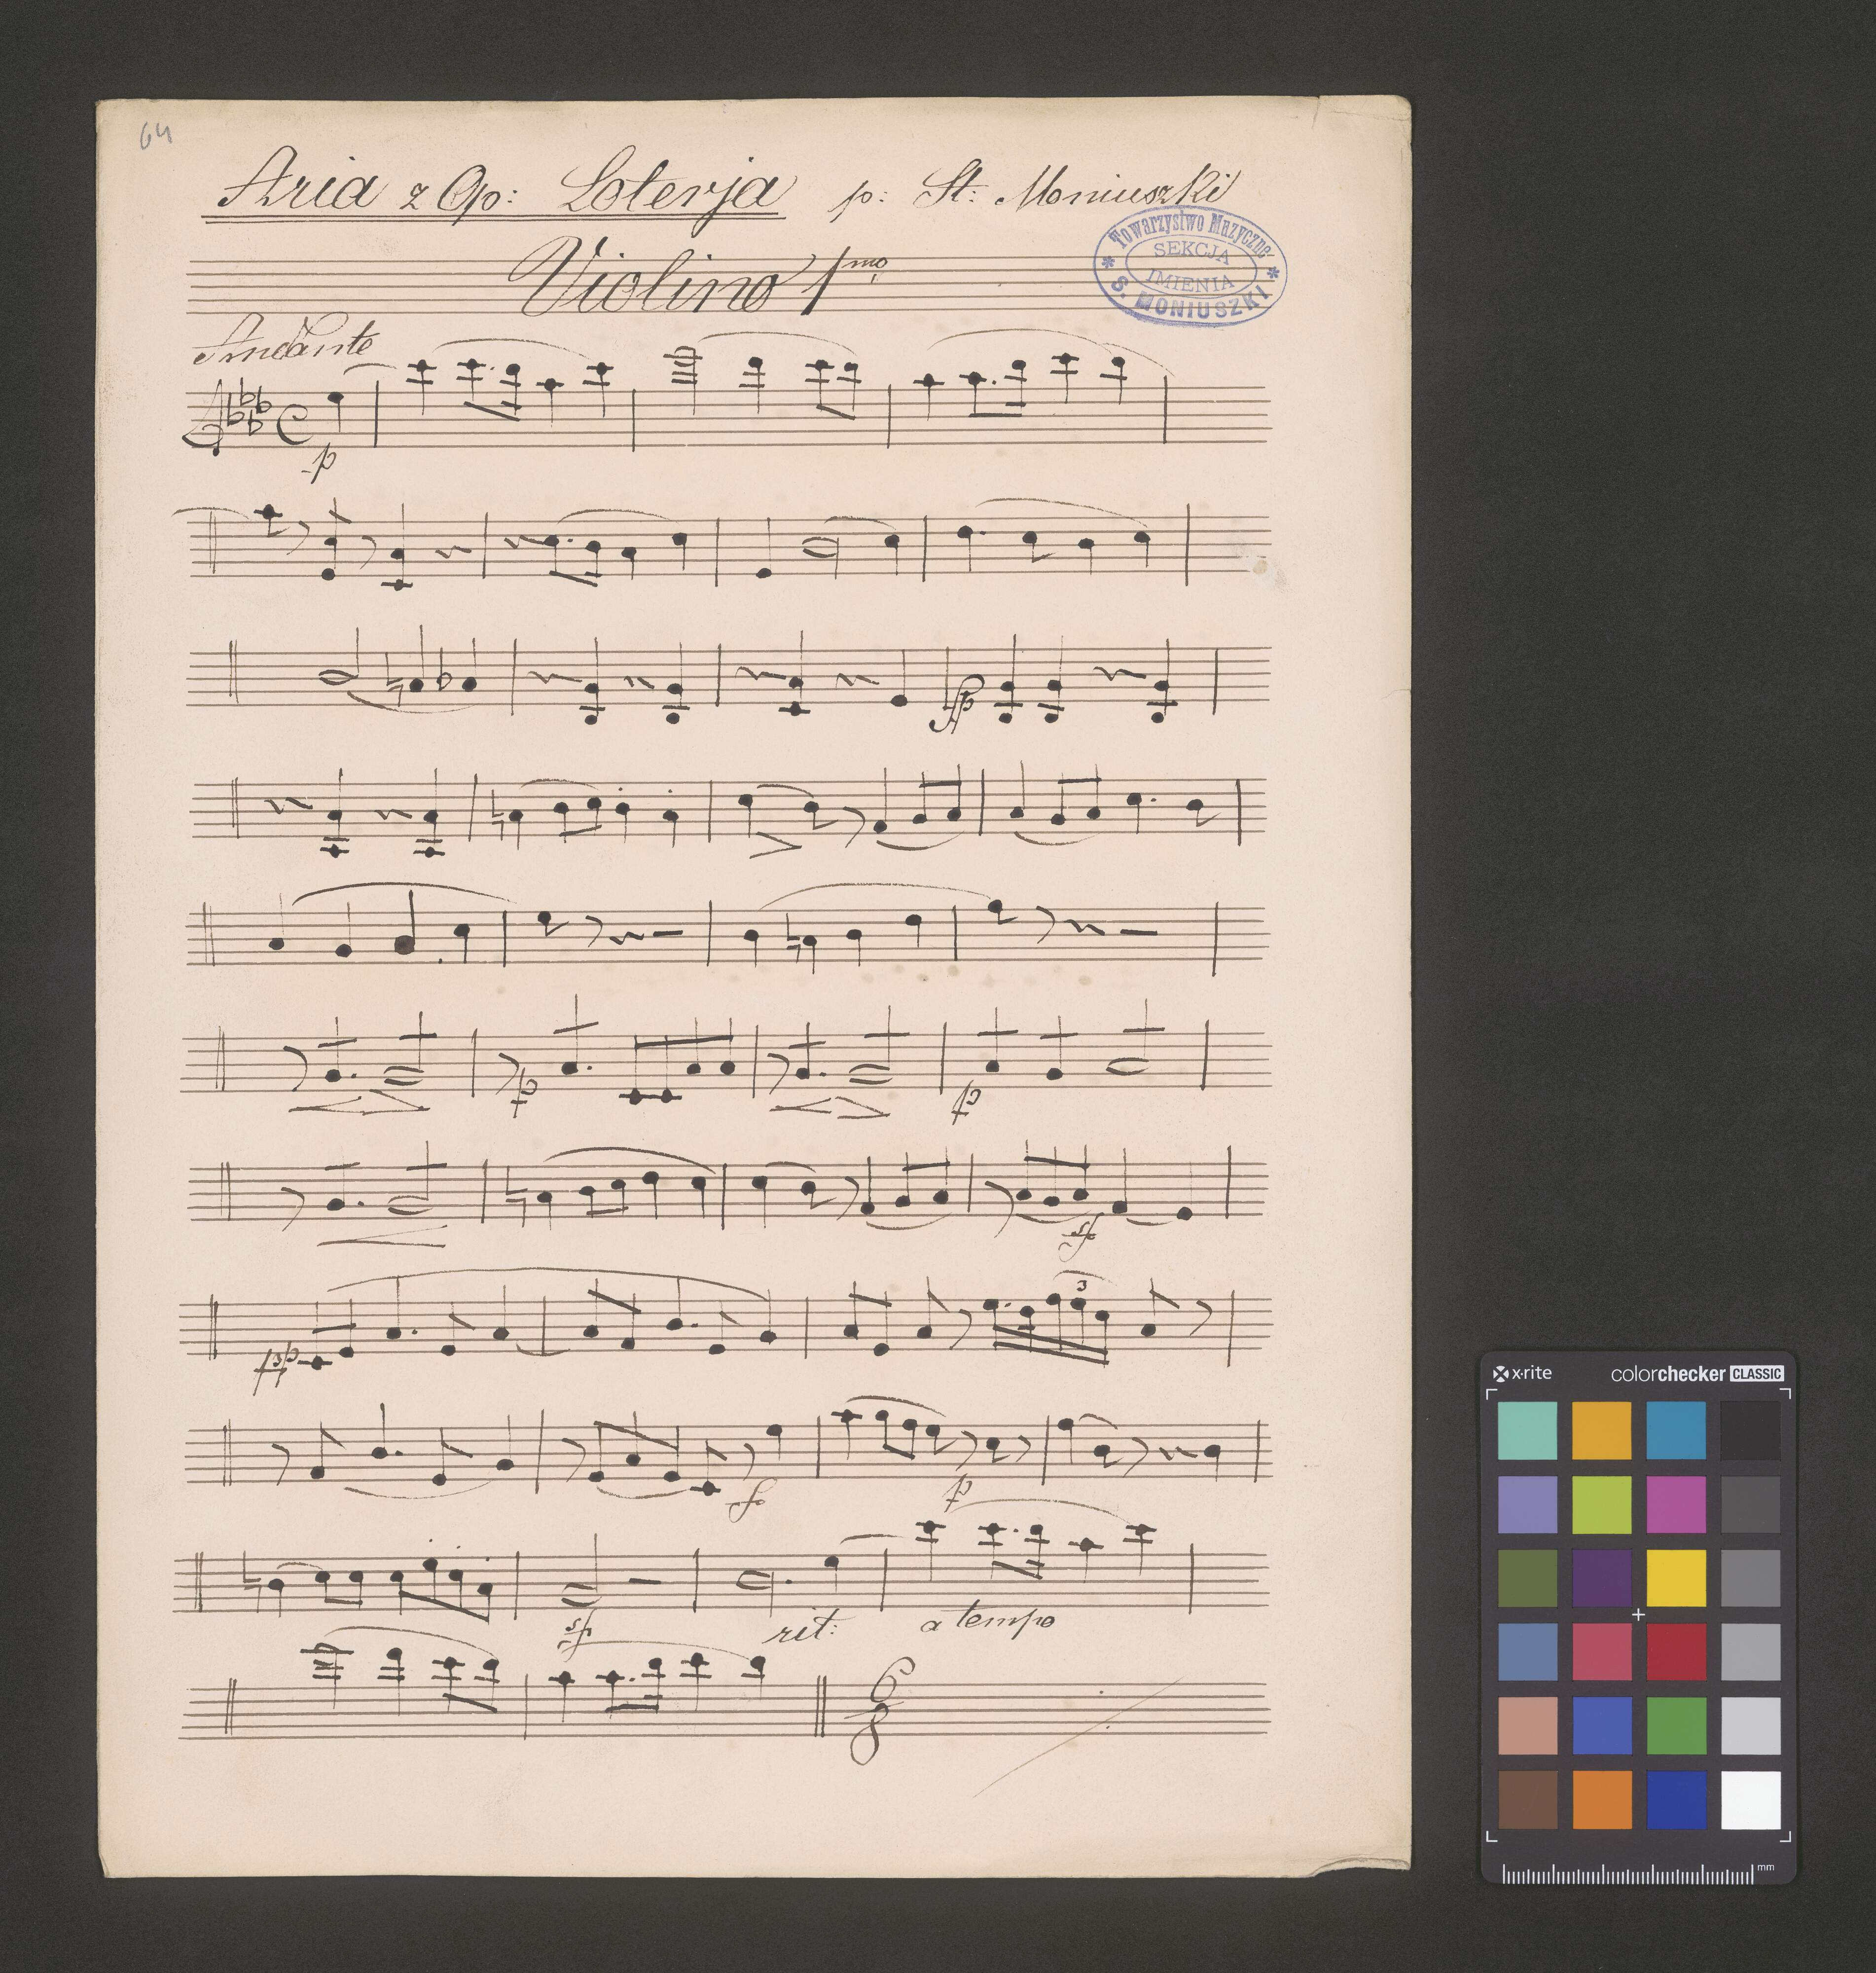 64
Aria z Op: Loterja p: St: Moniuszki
Violino 1mo
Towarzystwo Muzyczne
SEKCJA
IMIENIA
S. MONIUSZKI
Andante
C
p
fp
p
p
sf
pp
3
f
p
sf
rit:
a tempo
6
8
x-rite
colorchecker CLASSIC
mm